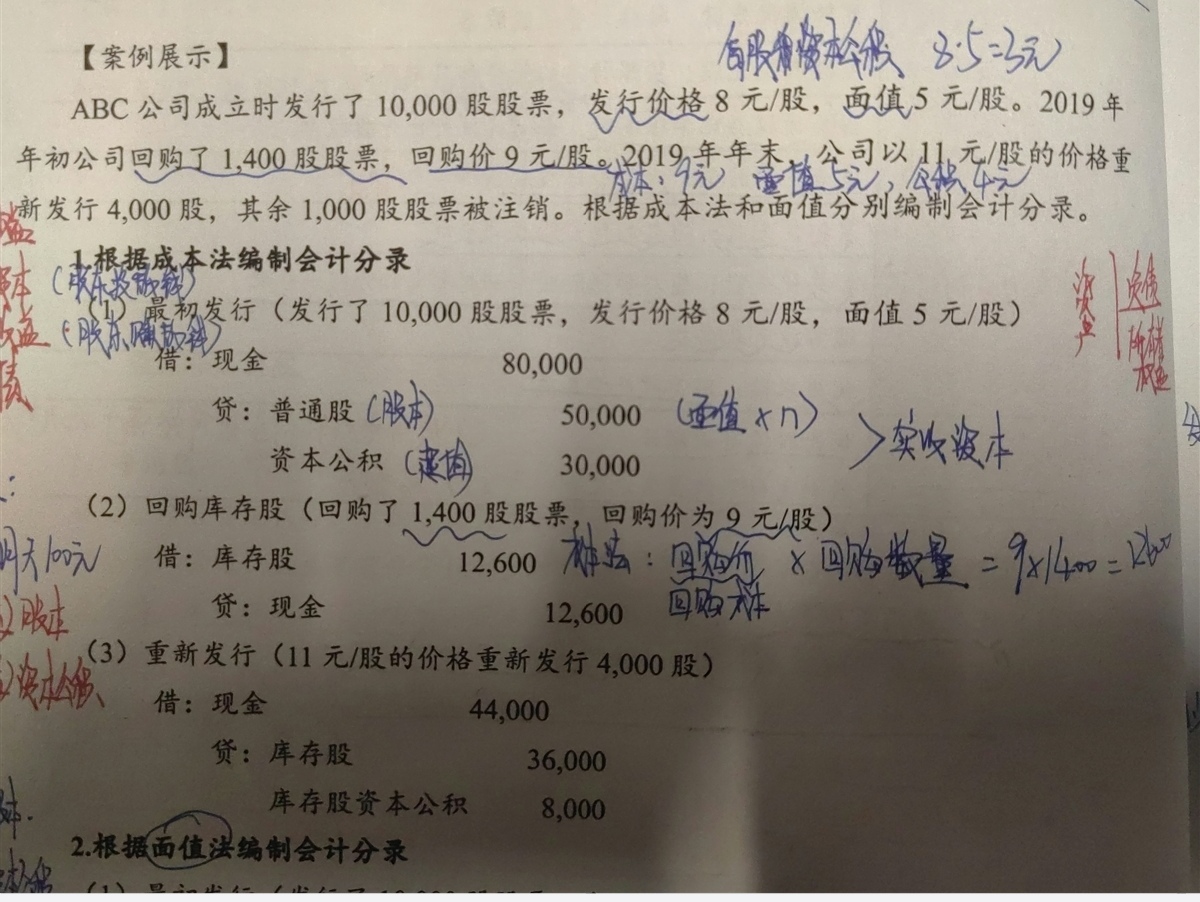 每股的资本公积 8-5=3元
【案例展示】
ABC 公司成立时发行了 10,000 股股票，发行价格 8 元/股，面值 5 元/股。2019 年
年初公司回购了 1,400 股股票，回购价 9 元/股。2019 年年末，公司以 11 元/股的价格重
成本：9元 面值5元，公积4元
新发行 4,000 股，其余 1,000 股股票被注销。根据成本法和面值分别编制会计分录。
益
1.根据成本法编制会计分录
股本（股东投的钱）
资产 负债
（1）最初发行（发行了 10,000 股股票，发行价格 8 元/股，面值 5 元/股）
收益（股东赚的钱）
所有者权益
借：现金 80,000
债
贷：普通股（股本） 50,000 （面值×n）
资本公积（差值） 30,000 >实收资本
（2）回购库存股（回购了 1,400 股股票，回购价为 9 元/股）
明天100元
借：库存股 12,600 成本法：回购价×回购数量=9×1400=12600
贷：现金 12,600 回购成本
股本
（3）重新发行（11 元/股的价格重新发行 4,000 股）
资本公积
借：现金 44,000
贷：库存股 36,000
库存股资本公积 8,000
本.
2.根据面值法编制会计分录